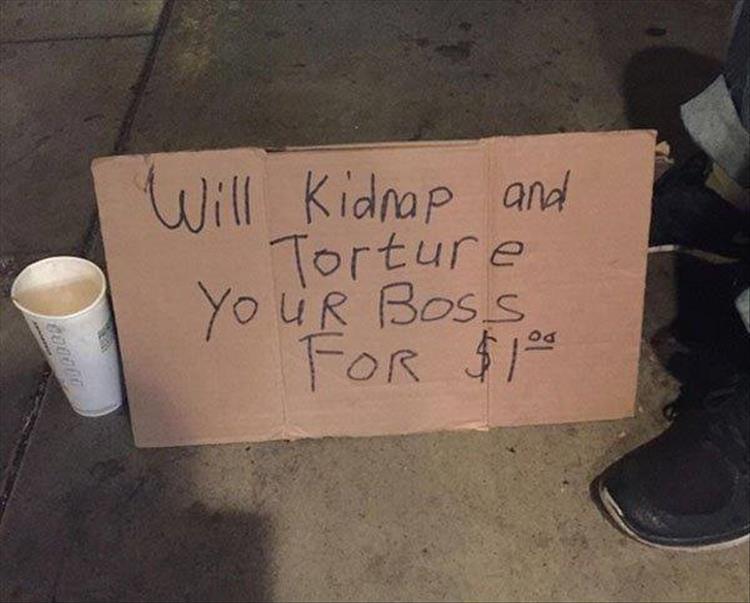 Will Kidnap and
Torture
YOUR BOSS
FOR $1.00